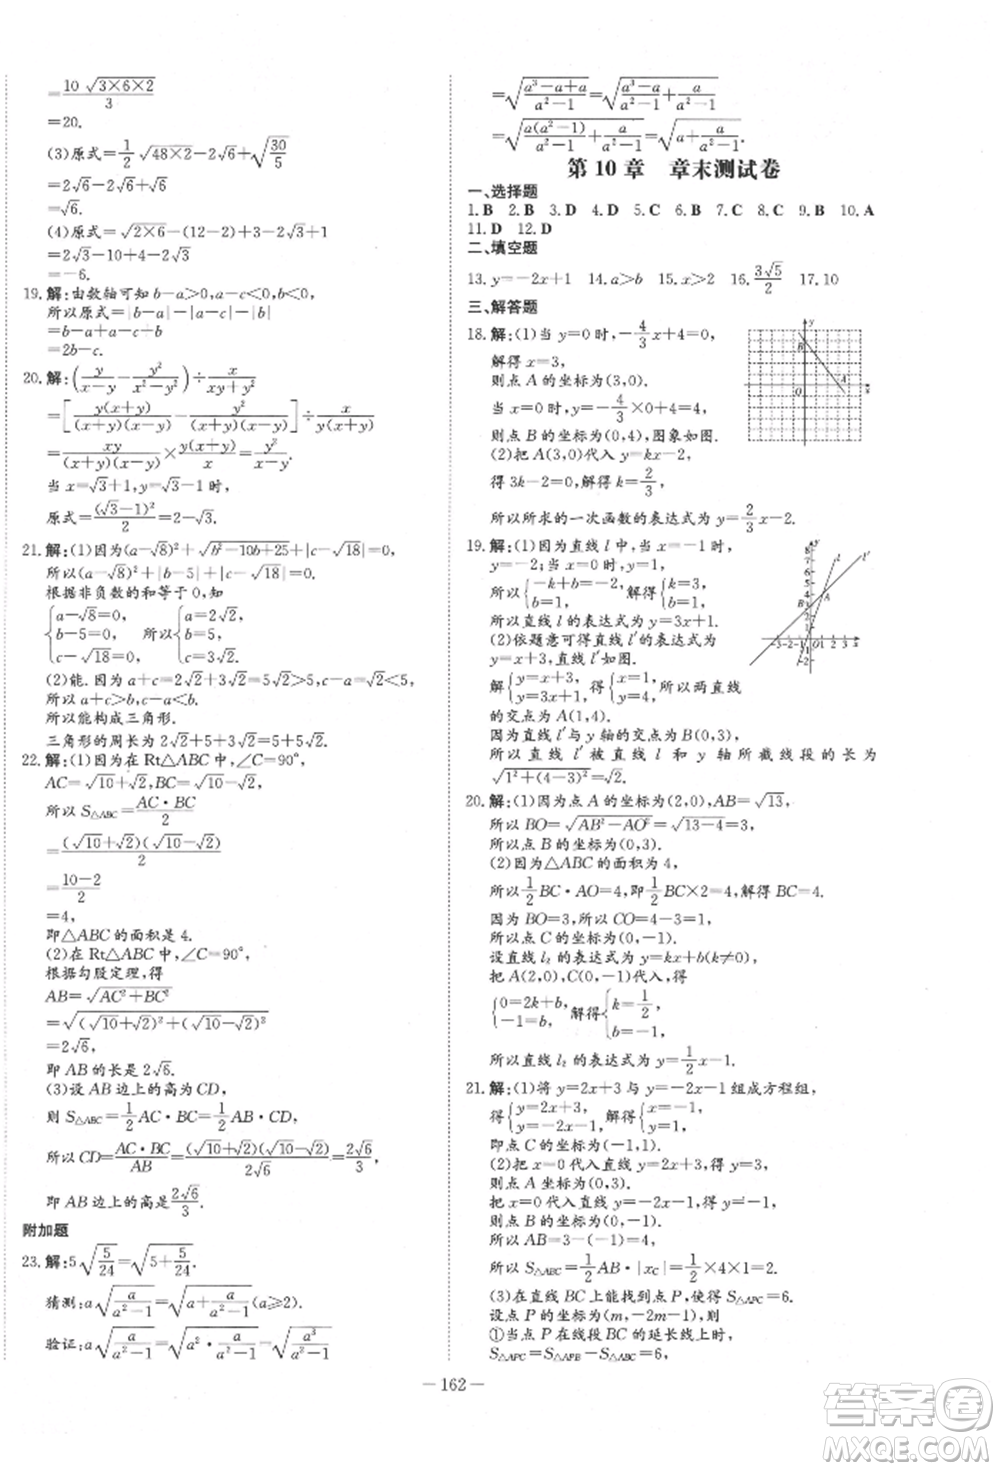 =10√(3×6×2)/3
=20.
(3)原式=1/2√(48×2)-2√6+√(30/5)
=2√6-2√6+√6
=√6.
(4)原式=√(2×6)-√2+3√2-2√3+1
=2√3-√2+3√2-2√3+1
=2√2+1.
19.解:由数轴可知b-a>0,a-c<0,b<0,
所以原式=|b-a|-|a-c|-|b|
=b-a+a-c+b
=2b-c.
20.解:(y/(x-y)-y²/(x²-y²))÷x/(xy+y²)
=[y(x+y)/((x+y)(x-y))-y²/((x+y)(x-y))]÷x/(y(x+y))
=xy/((x+y)(x-y))×y(x+y)/x=y²/(x-y).
当x=√3+1,y=√3-1时,
原式=(√3-1)²/2=2-√3.
21.解:(1)因为(a-√8)²+√(b²-10b+25)+|c-√18|=0,
所以(a-√8)²+|b-5|+|c-√18|=0.
根据非负数的和等于0,知
{a-√8=0, b-5=0, c-√18=0, 所以{a=2√2, b=5, c=3√2.
(2)能.因为a+c=2√2+3√2=5√2>5,c-a=√2<5,
所以a+c>b,c-a<b.
所以能构成三角形.
三角形的周长为2√2+5+3√2=5√2+5.
22.解:(1)因为在Rt△ABC中,∠C=90°,
AC=√10+√2,BC=√10-√2,
所以S△ABC=AC·BC/2
=(√10+√2)(√10-√2)/2
=(10-2)/2
=4,
即△ABC的面积是4.
(2)在Rt△ABC中,∠C=90°,
根据勾股定理,得
AB=√(AC²+BC²)
=√((√10+√2)²+(√10-√2)²)
=2√6,
即AB的长是2√6.
(3)设AB边上的高为CD,
则S△ABC=1/2AC·BC=1/2AB·CD,
所以CD=AC·BC/AB=(√10+√2)(√10-√2)/2√6=2√6/3,
即AB边上的高是2√6/3.
附加题
23.解:5√(5/24)=√(5+5/24).
猜测:a√(a/(a²-1))=√(a+a/(a²-1))(a≥2).
验证:a√(a/(a²-1))=√(a²·a/(a²-1))=√(a³/(a²-1))
=√((a³-a+a)/(a²-1))=√((a³-a)/(a²-1)+a/(a²-1))
=√(a(a²-1)/(a²-1)+a/(a²-1))=√(a+a/(a²-1)).
第10章 章末测试卷
一、选择题
1.B 2.B 3.D 4.D 5.C 6.B 7.C 8.C 9.B 10.A
11.D 12.D
二、填空题
13.y=-2x+1 14.a>b 15.m>2 16.3√5/2 17.10
三、解答题
18.解:(1)当y=0时,-4/3x+4=0,
解得x=3,
则点A的坐标为(3,0).
当x=0时,y=-4/3×0+4=4,
则点B的坐标为(0,4),图象如图.
(2)把A(3,0)代入y=kx-2,
得3k-2=0,解得k=2/3,
所以所求的一次函数的表达式为y=2/3x-2.
19.解:(1)因为直线l中,当x=-1时,
y=-2;当x=0时,y=1,
所以{-k+b=-2, b=1, 解得{k=3, b=1.
所以直线l的表达式为y=3x+1.
(2)依题意可得直线l′的表达式为
y=x+3,直线l′如图.
解{y=x+3, y=3x+1, 得{x=1, y=4, 所以两直线
的交点为A(1,4).
因为直线l′与y轴的交点为B(0,3),
所以直线l′被直线l和y轴所截线段的长为
√(1²+(4-3)²)=√2.
20.解:(1)因为点A的坐标为(2,0),AB=√13,
所以BO=√(AB²-AO²)=√(13-4)=3,
所以点B的坐标为(0,3).
(2)因为△ABC的面积为4,
所以1/2BC·AO=4,即1/2BC×2=4,解得BC=4.
因为BO=3,所以CO=4-3=1,
所以点C的坐标为(0,-1).
设直线l₂的表达式为y=kx+b(k≠0),
把A(2,0),C(0,-1)代入,得
{0=2k+b, -1=b, 解得{k=1/2, b=-1.
所以直线l₂的表达式为y=1/2x-1.
21.解:(1)将y=2x+3与y=-2x-1组成方程组,
得{y=2x+3, y=-2x-1, 解得{x=-1, y=1.
即点C的坐标为(-1,1).
(2)把x=0代入直线y=2x+3,得y=3.
则点A的坐标为(0,3).
把x=0代入直线y=-2x-1,得y=-1.
则点B的坐标为(0,-1).
所以AB=3-(-1)=4,
所以S△ABC=1/2AB·|xC|=1/2×4×1=2.
(3)在直线BC上能找到点P,使得S△APC=6.
设点P的坐标为(m,-2m-1),则
①当点P在线段BC的延长线上时,
S△APC=S△APB-S△ABC=6,
-162-
答案圈
MXQE.COM